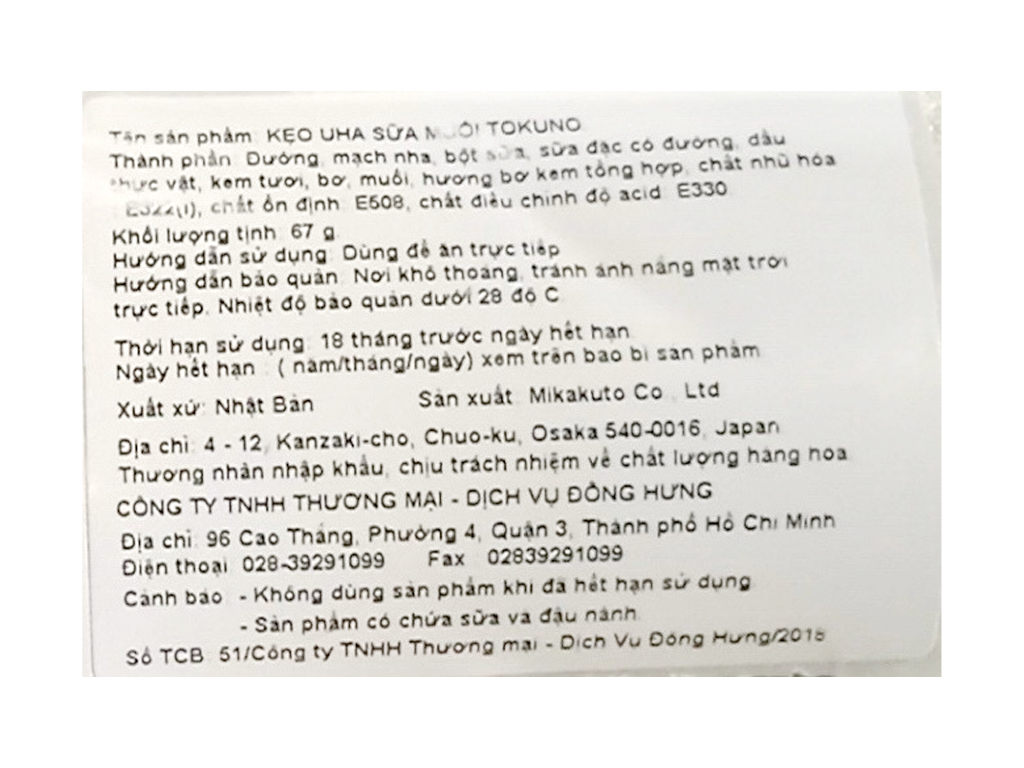 Tên sản phẩm: KẸO UHA SỮA MUỐI TOKUNO
Thành phần: Đường, mạch nha, bột sữa, sữa đặc có đường, dầu
thực vật, kem tươi, bơ, muối, hương bơ kem tổng hợp, chất nhũ hóa
: E322(i), chất ổn định: E508, chất điều chỉnh độ acid: E330
Khối lượng tịnh: 67 g
Hướng dẫn sử dụng: Dùng để ăn trực tiếp
Hướng dẫn bảo quản: Nơi khô thoáng, tránh ánh nắng mặt trời
trực tiếp. Nhiệt độ bảo quản dưới 28 độ C
Thời hạn sử dụng: 18 tháng trước ngày hết hạn
Ngày hết hạn : ( năm/tháng/ngày) xem trên bao bì sản phẩm
Xuất xứ: Nhật Bản Sản xuất: Mikakuto Co., Ltd
Địa chỉ: 4 - 12, Kanzaki-cho, Chuo-ku, Osaka 540-0016, Japan
Thương nhân nhập khẩu, chịu trách nhiệm về chất lượng hàng hóa
CÔNG TY TNHH THƯƠNG MẠI - DỊCH VỤ ĐÔNG HƯNG
Địa chỉ: 96 Cao Thắng, Phường 4, Quận 3, Thành phố Hồ Chí Minh
Điện thoại: 028-39291099 Fax : 02839291099
Cảnh báo: - Không dùng sản phẩm khi đã hết hạn sử dụng
- Sản phẩm có chứa sữa và đậu nành.
Số TCB: 51/Công ty TNHH Thương mại - Dịch Vụ Đông Hưng/2018